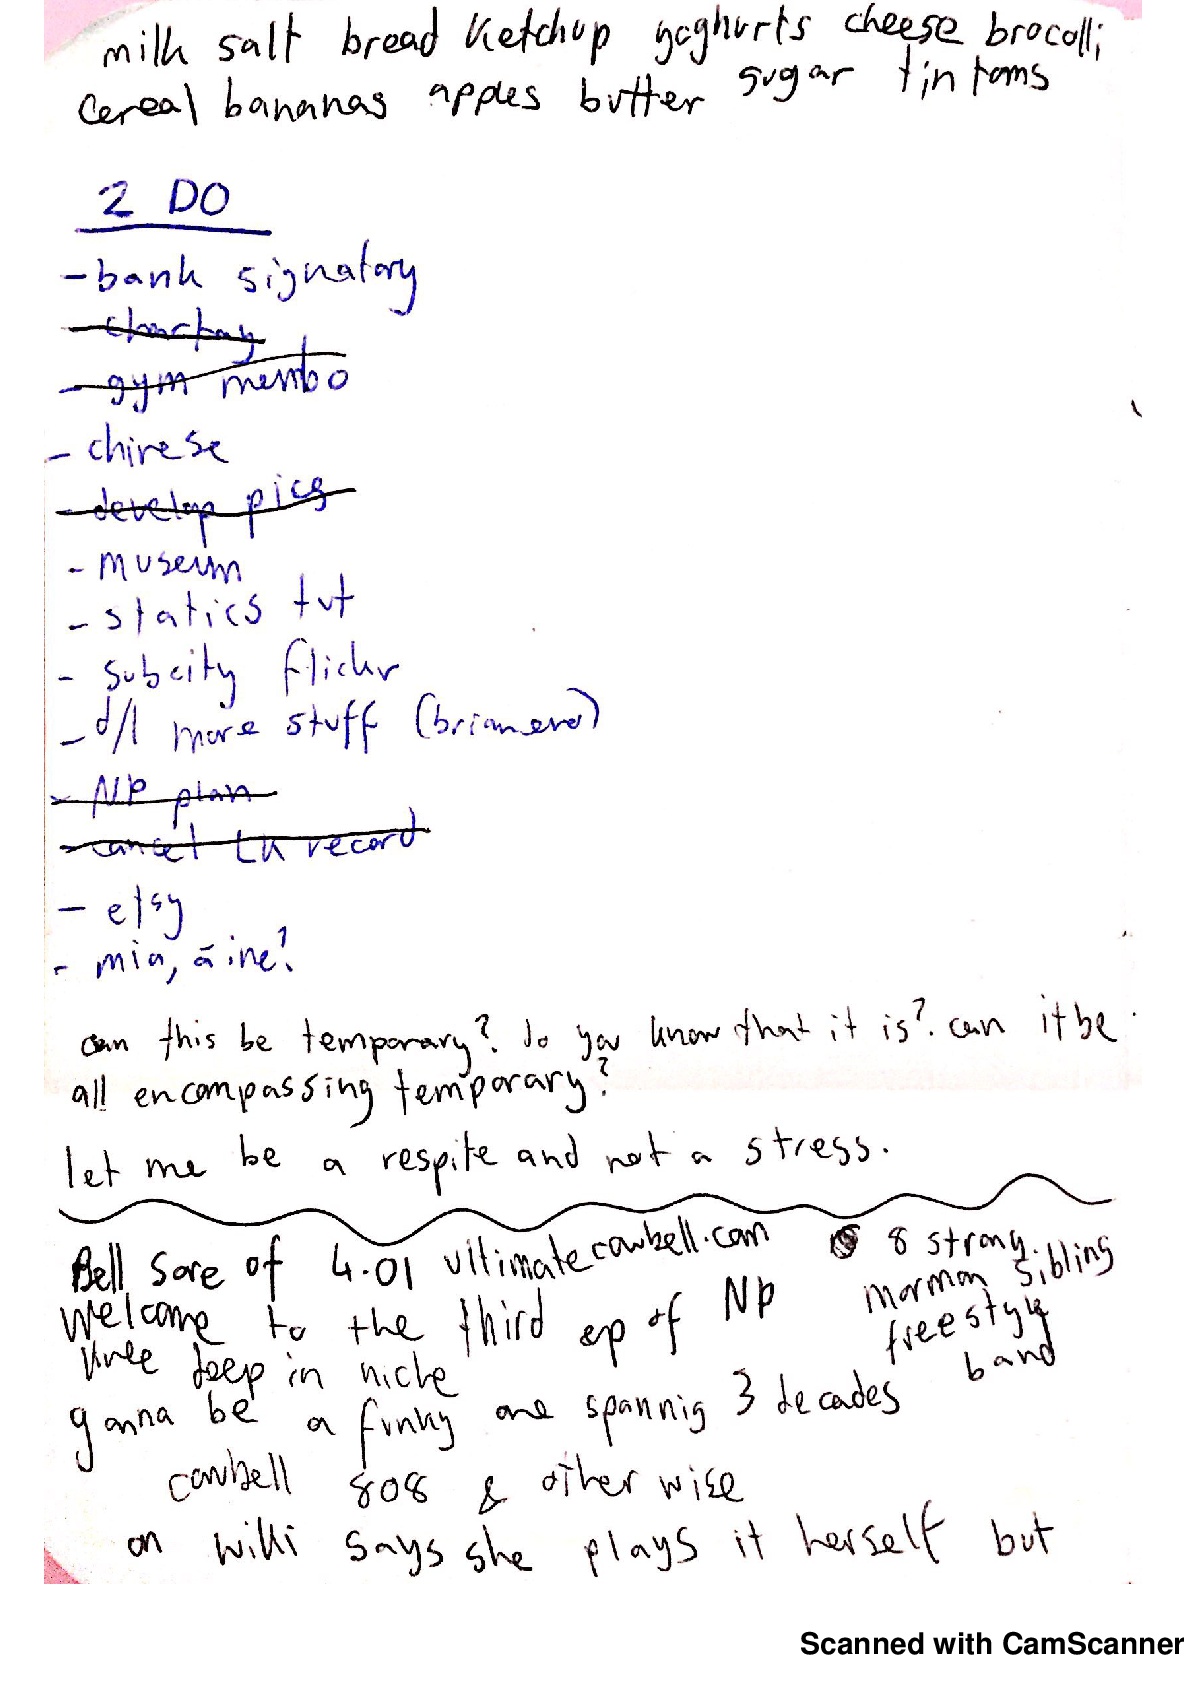 milk salt bread ketchup yoghurts cheese brocolli
cereal bananas apples butter sugar tin toms
2 DO
- bank signatory
- gym membo
- chinese
- develop pics
- museum
- statics tut
- subcity flickr
- d/l more stuff
- NP plan
- cancel LU record
- etsy
- mia, áine?
can this be temporary? do you know that it is?. can it be
all encompassing temporary?
let me be a respite and not a stress.
Bell Sore of 4.01 ultimatecowbell.com
8 strong
mormon sibling
freestyle
band
Welcome to the third ep of NP
knee deep in niche
gonna be a funky one spannig 3 decades
cowbell 808 & other wise
on wiki says she plays it herself but
Scanned with CamScanner